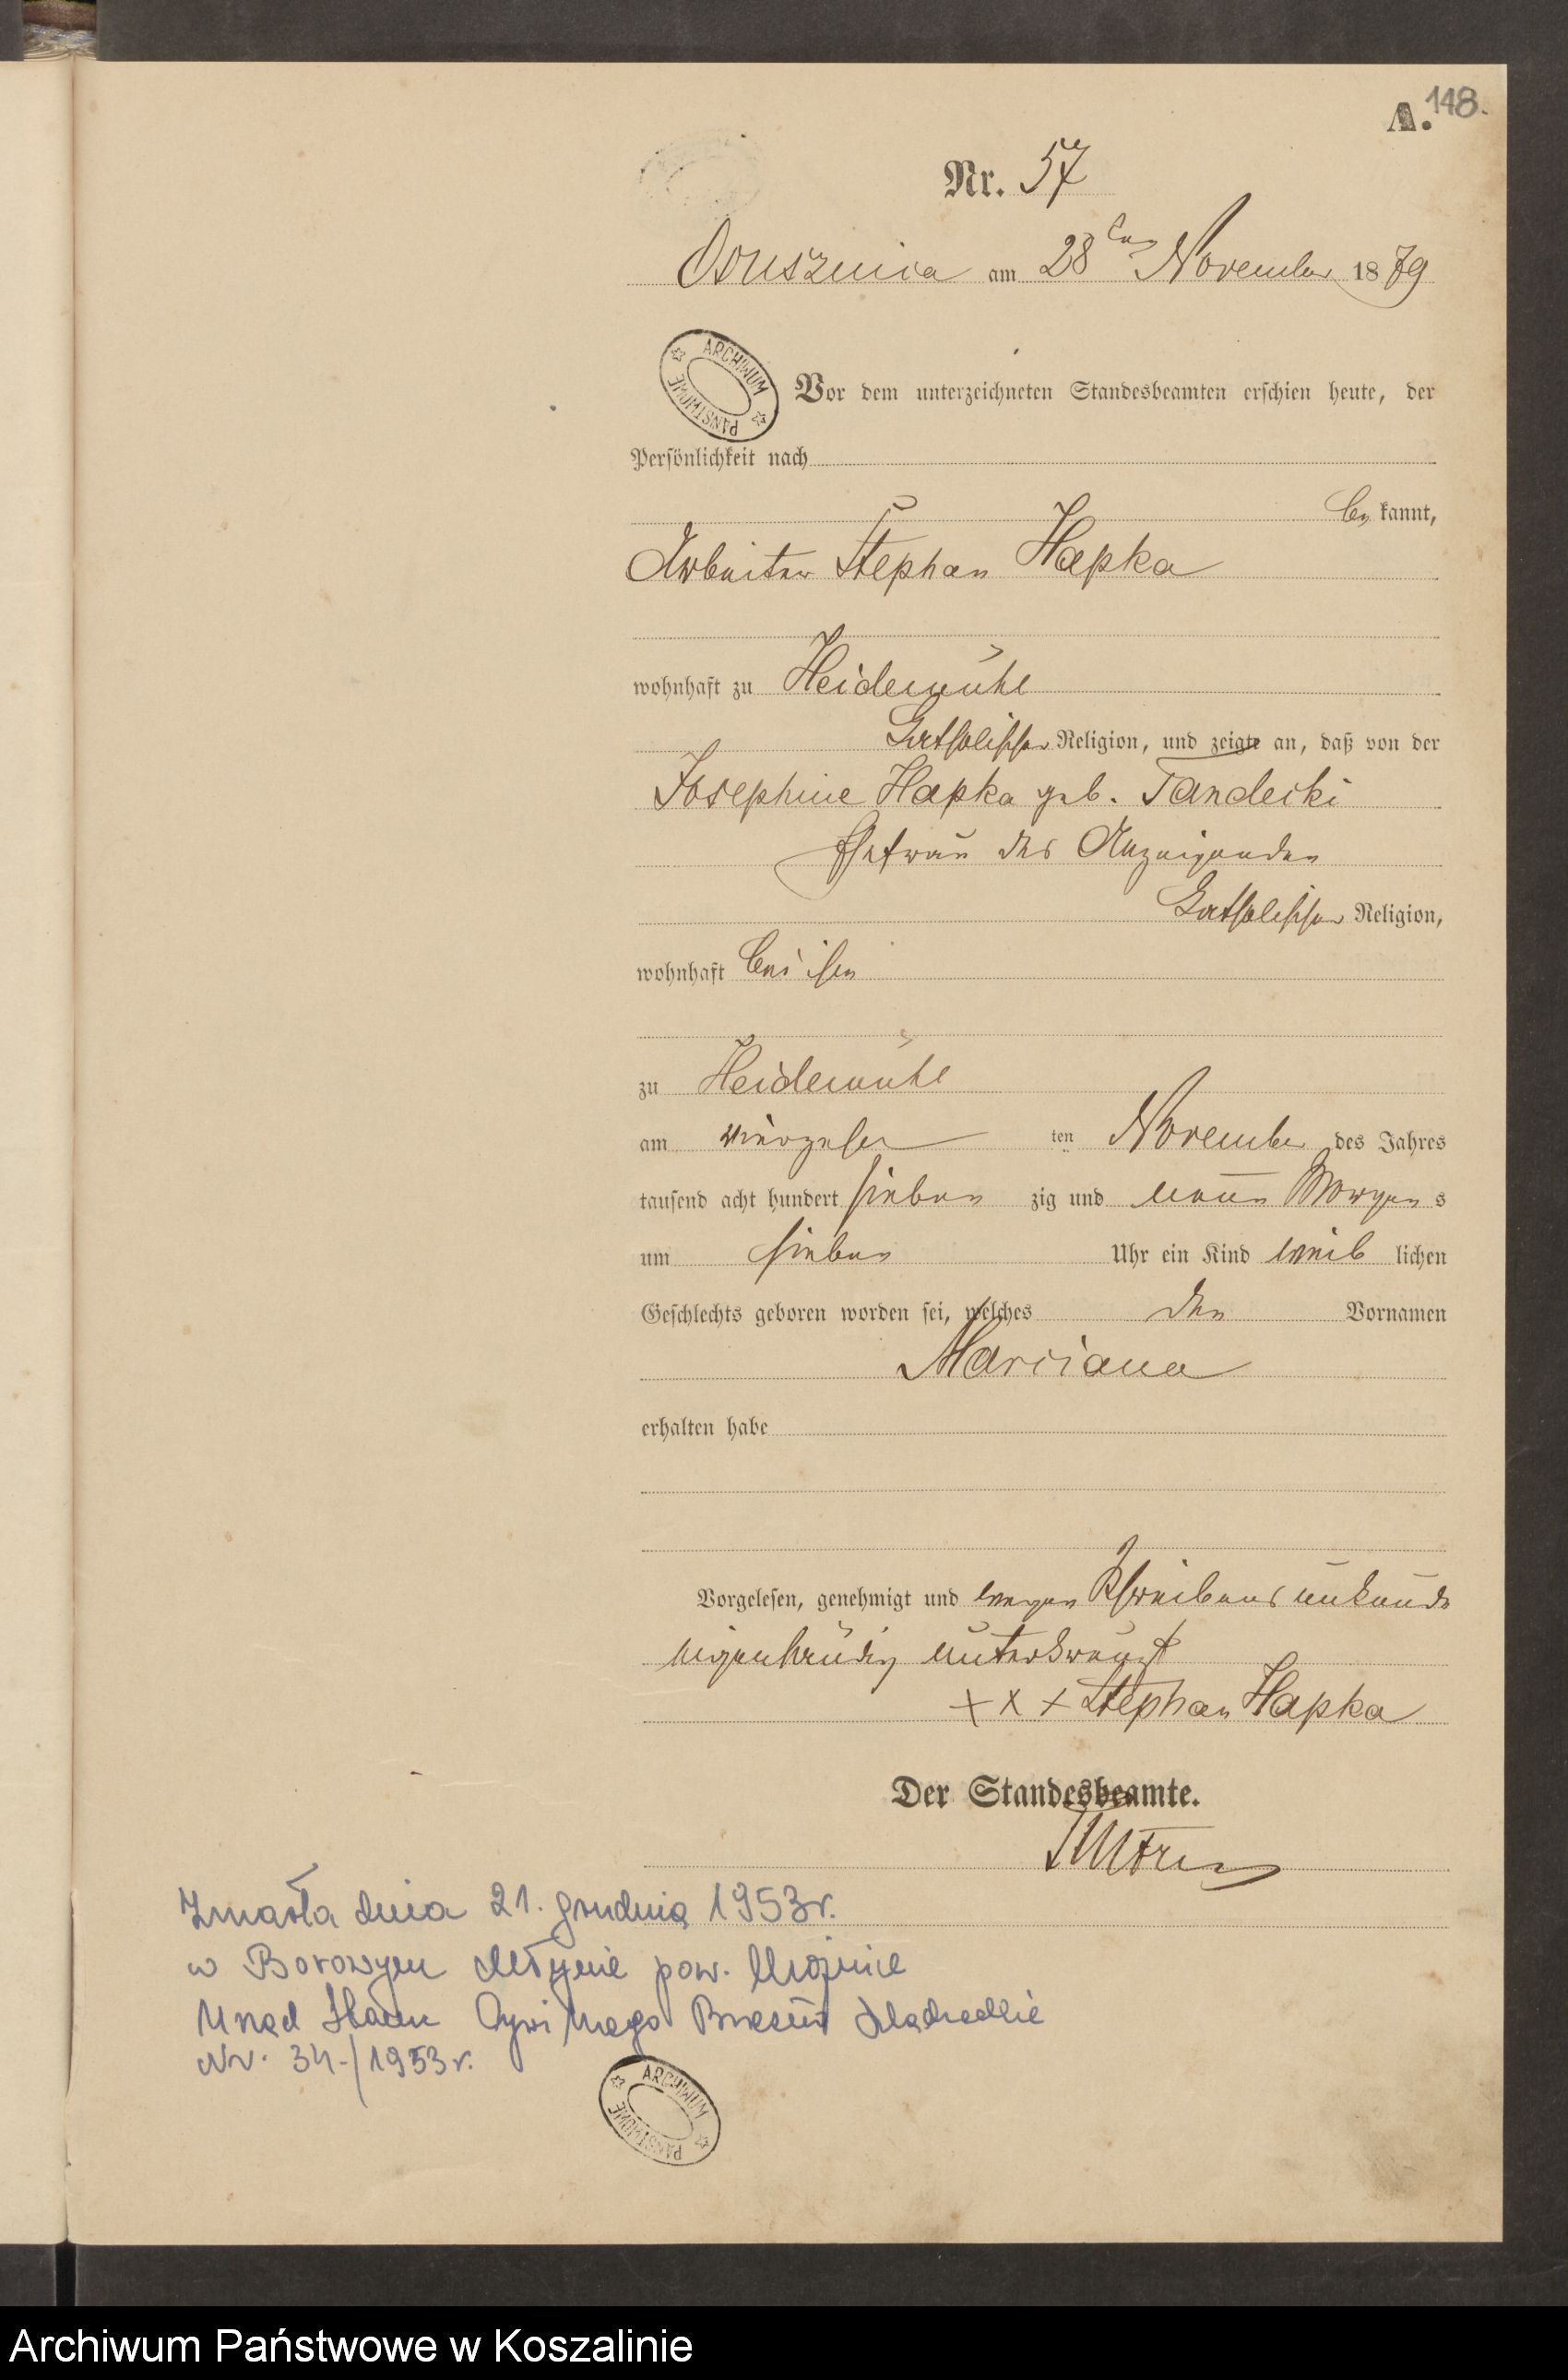 A. 148.
Nr. 57
Ossusznica am 28ten November 1879
ARCHIWUM PAŃSTWOWE
Vor dem unterzeichneten Standesbeamten erschien heute, der
Persönlichkeit nach
be kannt,
Arbeiter Stephan Hapka
wohnhaft zu Heidemühl
katholischer Religion, und zeigte an, daß von der
Josephine Hapka geb. Tandecki
Ehefrau des Anzeigenden
katholischer Religion,
wohnhaft bei ihm
zu Heidemühl
am vierzehn ten November des Jahres
tausend acht hundert sieben zig und neun Morgens
um sieben Uhr ein Kind weib lichen
Geschlechts geboren worden sei, welches den Vornamen
Marciana
erhalten habe
Vorgelesen, genehmigt und wegen Schreibensunkunde
eigenhändig unterkreuzt
+ x + Stephan Hapka
Der Standesbeamte.
Zmarła dnia 21. grudnia 1953r.
w Borowym Młynie pow.
Urząd Stanu Cywilnego Brzeźno Szlacheckie
Nr. 34-/1953r.
ARCHIWUM PAŃSTWOWE
Archiwum Państwowe w Koszalinie